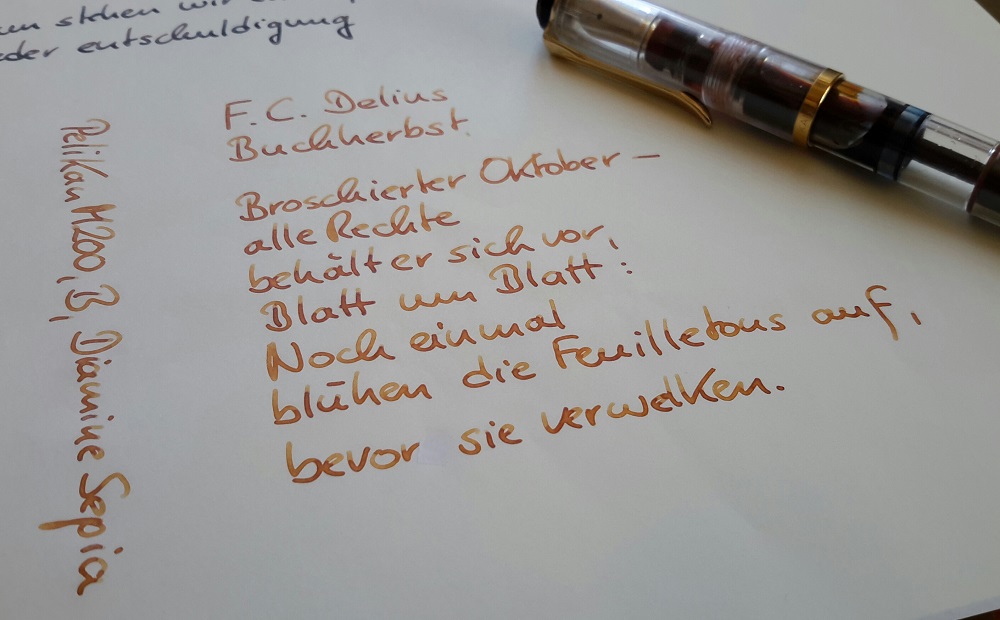 stehen wir
entschuldigung
F. C. Delius
Buchherbst.
Broschierter Oktober –
alle Rechte
behält er sich vor,
Blatt um Blatt :
Noch einmal
blühen die Feuilletons auf,
bevor sie verwelken.
Pelikan M200, B, Diamine Sepia